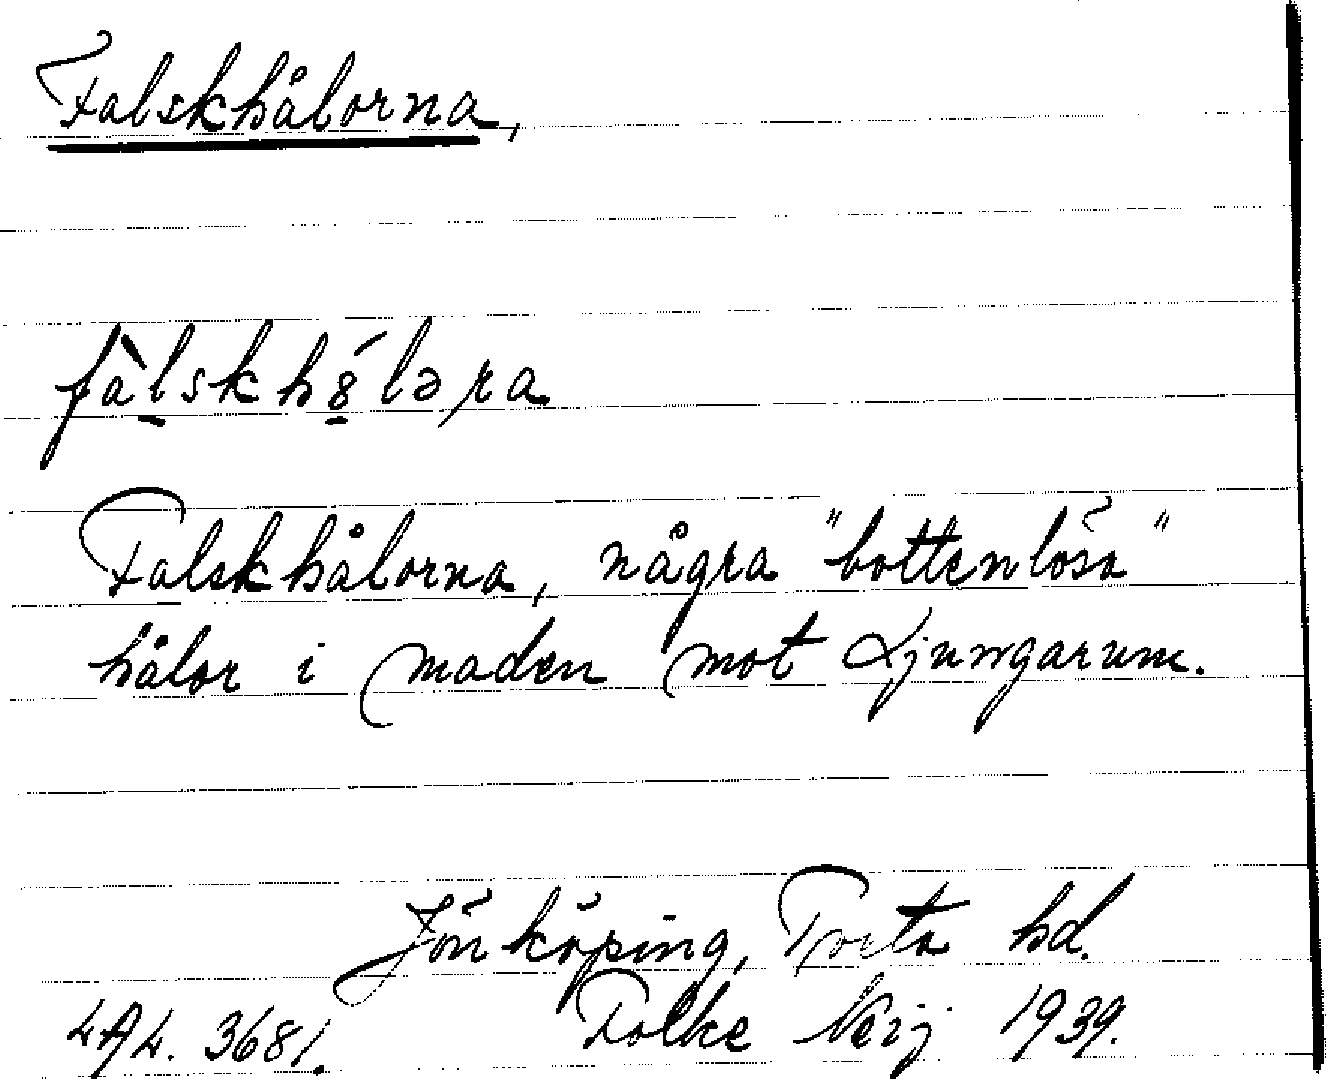 Falskhålorna,
fàlskh8́ləra
Falskhålorna, några "bottenlösa"
hålor i maden mot Ljungarum.
Jönköping, Tveta hd.
LAL. 3681. Folke Neij 1939.